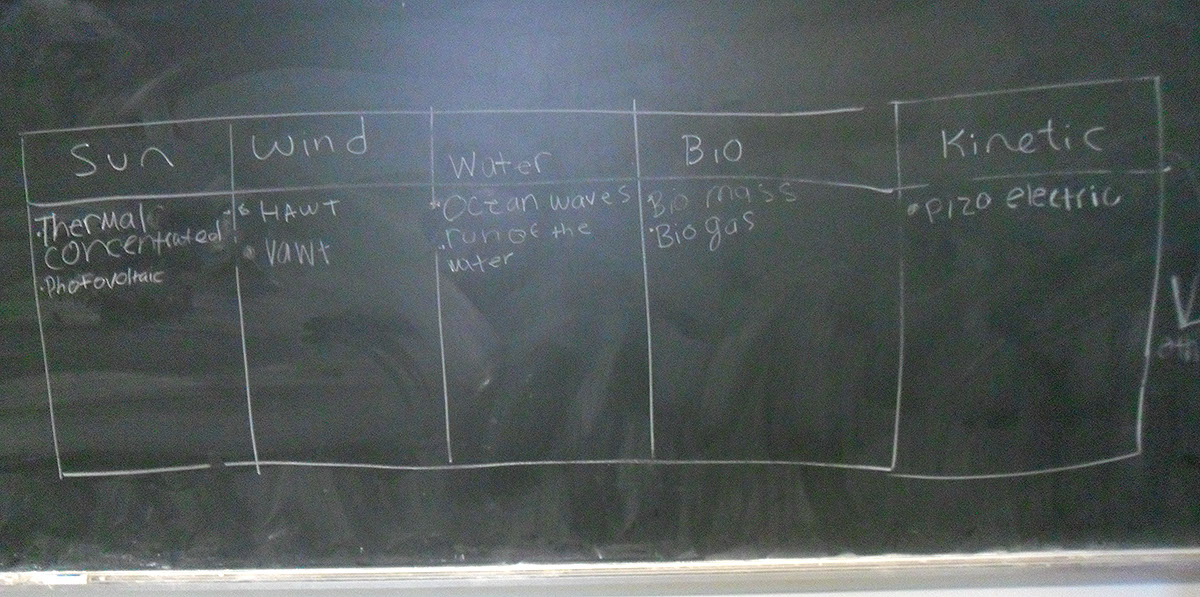 Sun
Wind
Water
Bio
Kinetic
·Thermal
concentrated
·Photovoltaic
• HAWT
• VAWT
·Ocean waves
·run of the
water
Bio mass
·Bio gas
• pizo electric